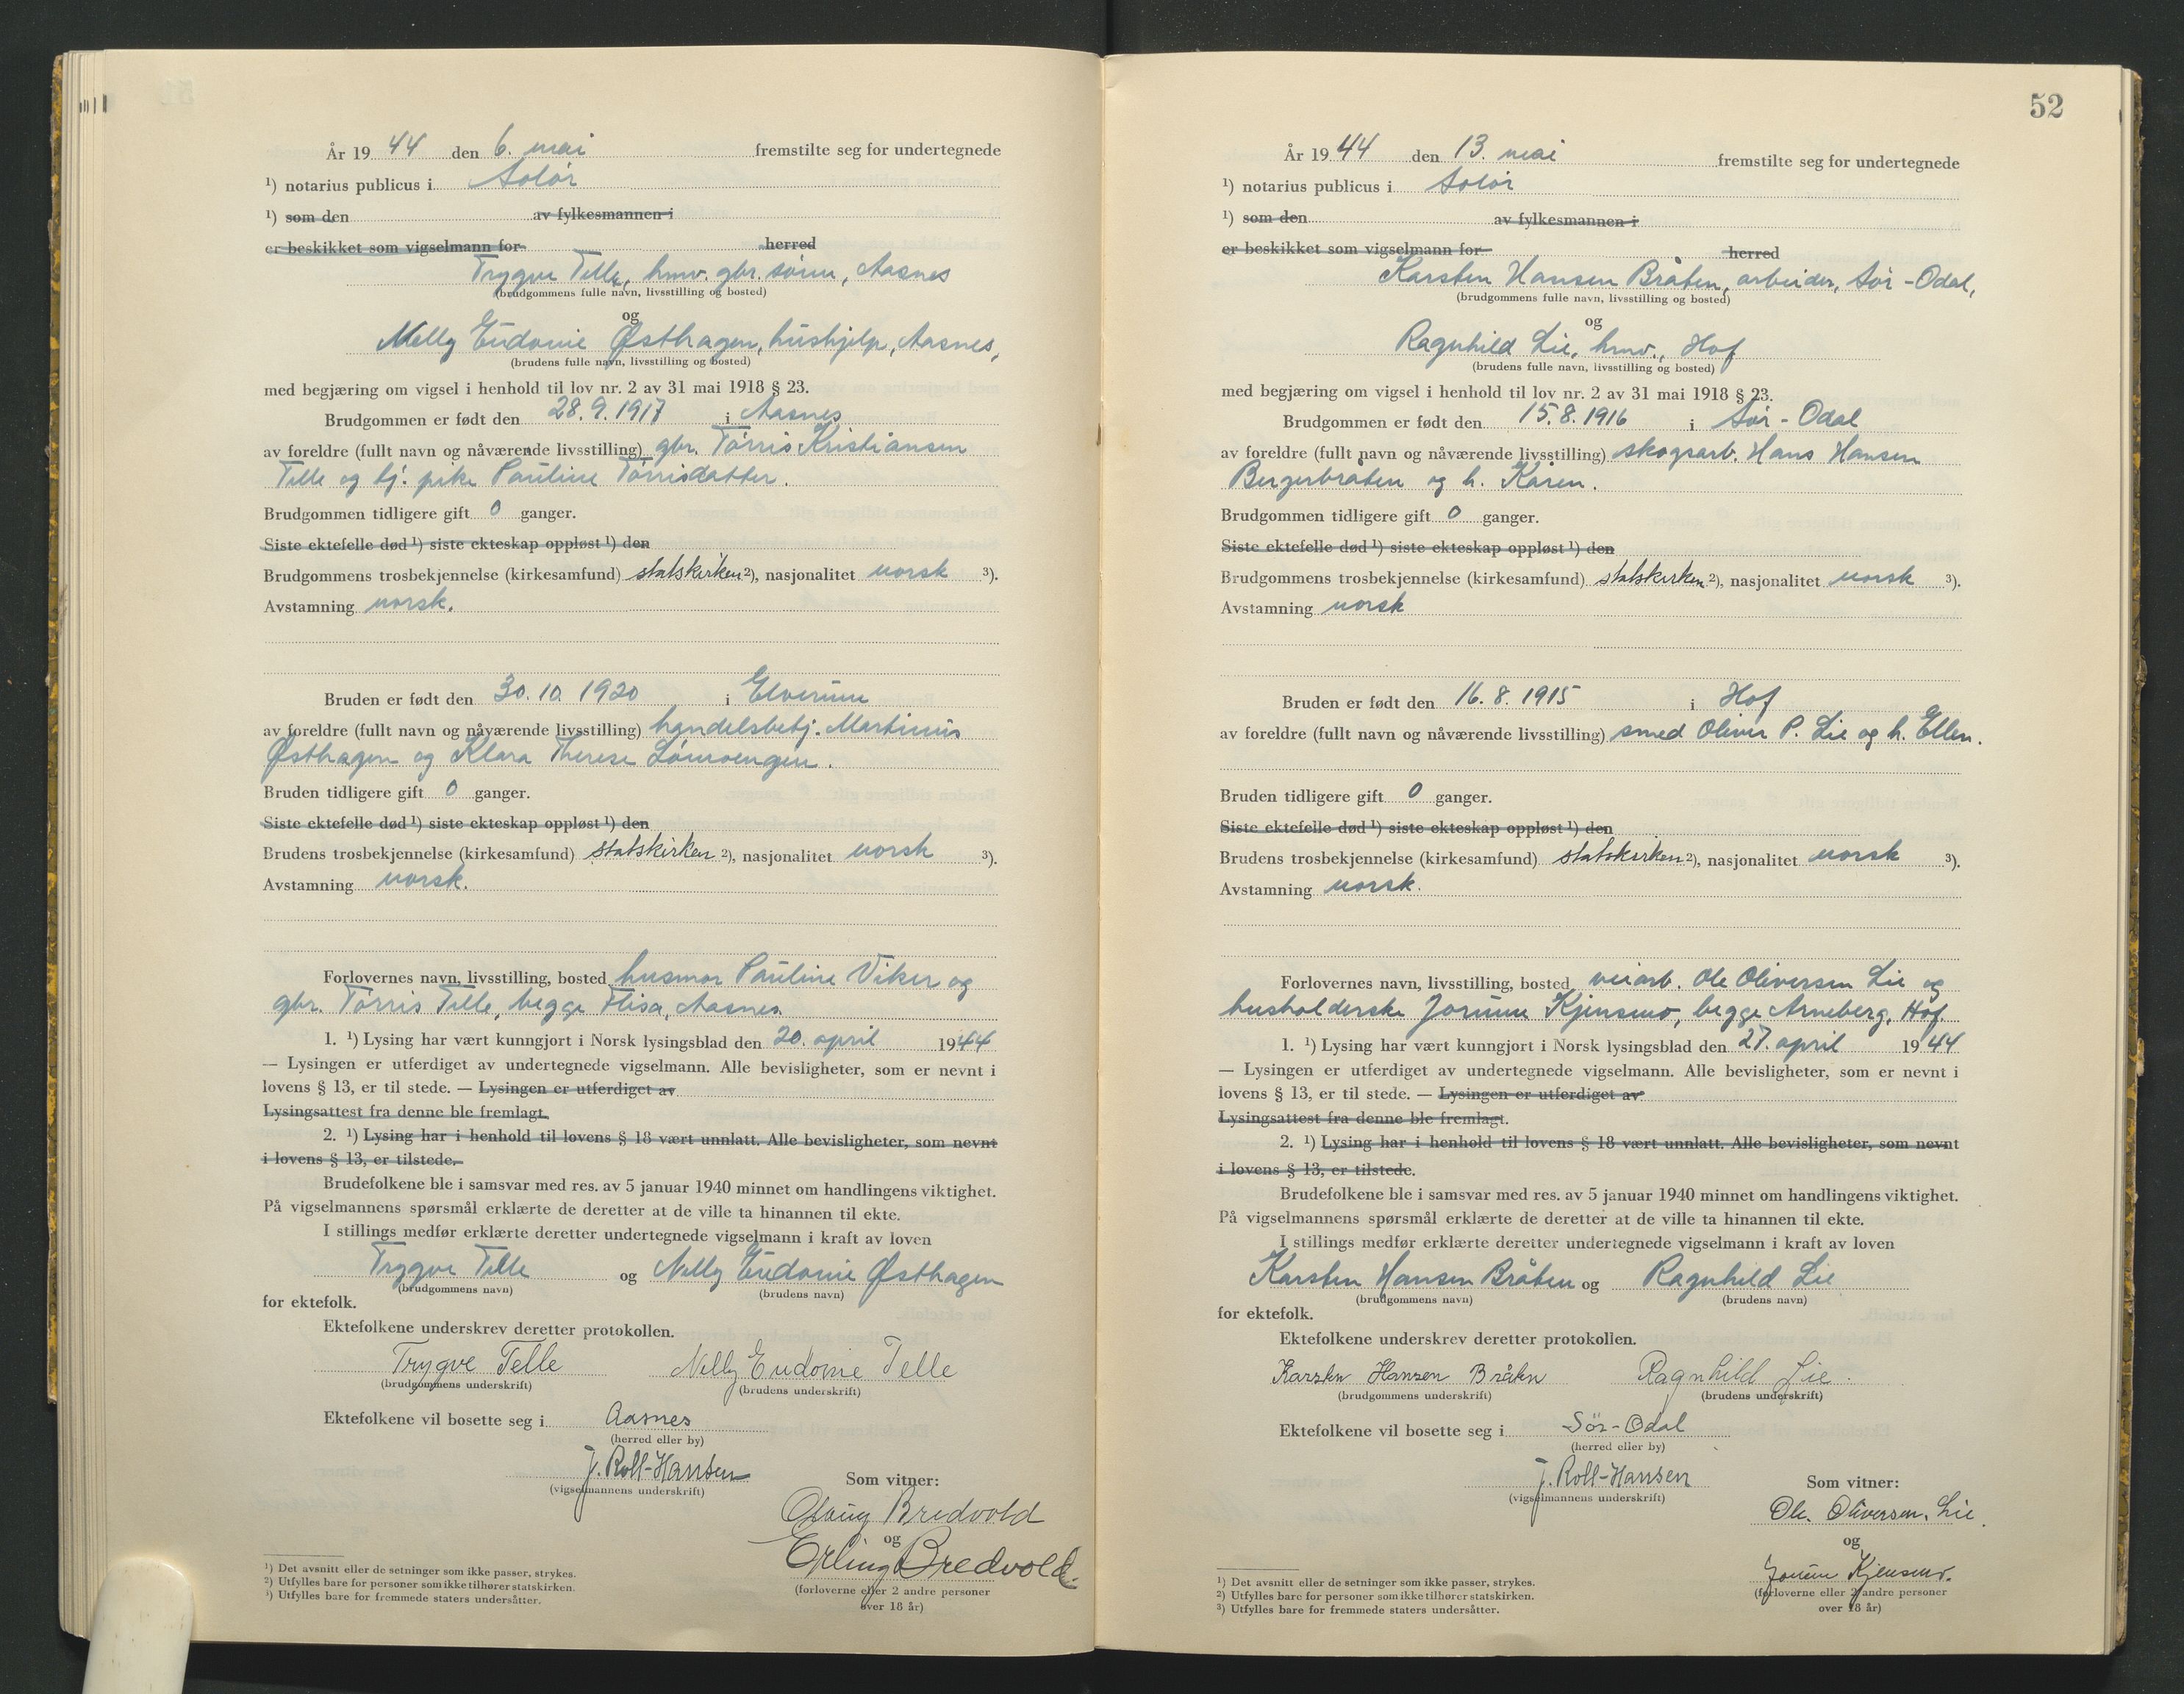 År 1944 den 6. mai fremstilte seg for undertegnede
¹) notarius publicus i Solør
¹) som den av fylkesmannen i
er beskikket som vigselmann for herred
Trygve Telle, hmv. gbr. sønn, Aasnes
(brudgommens fulle navn, livsstilling og bosted)
og
Nelly Eudonie Østhagen, hushjelp, Aasnes,
(brudens fulle navn, livsstilling og bosted)
med begjæring om vigsel i henhold til lov nr. 2 av 31 mai 1918 § 23.
Brudgommen er født den 28.9.1917 i Aasnes
av foreldre (fullt navn og nåværende livsstilling) gbr. Tørris Kristiansen
Telle og tj. pike Pauline Tørrisdatter.
Brudgommen tidligere gift 0 ganger.
Siste ektefelle død ¹) siste ekteskap oppløst ¹) den
Brudgommens trosbekjennelse (kirkesamfund) statskirken ²), nasjonalitet norsk ³).
Avstamning norsk.
Bruden er født den 30.10.1920 i Elverum
av foreldre (fullt navn og nåværende livsstilling) handelsbetj. Martinius
Østhagen og Klara Therese Lømoengen.
Bruden tidligere gift 0 ganger.
Siste ektefelle død ¹) siste ekteskap oppløst ¹) den
Brudens trosbekjennelse (kirkesamfund) statskirken ²), nasjonalitet norsk ³).
Avstamning norsk.
Forlovernes navn, livsstilling, bosted husmor Pauline Viker og
gbr. Tørris Telle, begge Flisa, Aasnes.
1. ¹) Lysing har vært kunngjort i Norsk lysingsblad den 20. april 1944
— Lysingen er utferdiget av undertegnede vigselmann. Alle bevisligheter, som er nevnt i
lovens § 13, er til stede. — Lysingen er utferdiget av
Lysingsattest fra denne ble fremlagt.
2. ¹) Lysing har i henhold til lovens § 18 vært unnlatt. Alle bevisligheter, som nevnt
i lovens § 13, er tilstede.
Brudefolkene ble i samsvar med res. av 5 januar 1940 minnet om handlingens viktighet.
På vigselmannens spørsmål erklærte de deretter at de ville ta hinannen til ekte.
I stillings medfør erklærte deretter undertegnede vigselmann i kraft av loven
Trygve Telle og Nelly Eudonie Østhagen
(brudgommens navn) (brudens navn)
for ektefolk.
Ektefolkene underskrev deretter protokollen.
Trygve Telle Nelly Eudonie Telle
(brudgommens underskrift) (brudens underskrift)
Ektefolkene vil bosette seg i Aasnes
(herred eller by)
J. Roll-Hansen
(vigselmannens underskrift)
Som vitner:
Bredvold
og
Erling Bredvold.
(forloverne eller 2 andre personer
over 18 år)
¹) Det avsnitt eller de setninger som ikke passer, strykes.
²) Utfylles bare for personer som ikke tilhører statskirken.
³) Utfylles bare for fremmede staters undersåtter.
52
År 1944 den 13. mai fremstilte seg for undertegnede
¹) notarius publicus i Solør
¹) som den av fylkesmannen i
er beskikket som vigselmann for herred
Karsten Hansen Bråten, arbeider, Sør-Odal,
(brudgommens fulle navn, livsstilling og bosted)
og
Ragnhild Lie, hmv., Hof
(brudens fulle navn, livsstilling og bosted)
med begjæring om vigsel i henhold til lov nr. 2 av 31 mai 1918 § 23.
Brudgommen er født den 15.8.1916 i Sør-Odal
av foreldre (fullt navn og nåværende livsstilling) skogsarb. Hans Hansen
Bergerbråten og h. Karen.
Brudgommen tidligere gift 0 ganger.
Siste ektefelle død ¹) siste ekteskap oppløst ¹) den
Brudgommens trosbekjennelse (kirkesamfund) statskirken ²), nasjonalitet norsk ³).
Avstamning norsk
Bruden er født den 16.8.1915 i Hof
av foreldre (fullt navn og nåværende livsstilling) smed Oliver P. Lie og h. Ellen.
Bruden tidligere gift 0 ganger.
Siste ektefelle død ¹) siste ekteskap oppløst ¹) den
Brudens trosbekjennelse (kirkesamfund) statskirken ²), nasjonalitet norsk ³).
Avstamning norsk.
Forlovernes navn, livsstilling, bosted veiarb. Ole Oliversen Lie og
husholderske Jorunn Kjensmo, begge Arneberg, Hof.
1. ¹) Lysing har vært kunngjort i Norsk lysingsblad den 27. april 1944
— Lysingen er utferdiget av undertegnede vigselmann. Alle bevisligheter, som er nevnt i
lovens § 13, er til stede. — Lysingen er utferdiget av
Lysingsattest fra denne ble fremlagt.
2. ¹) Lysing har i henhold til lovens § 18 vært unnlatt. Alle bevisligheter, som nevnt
i lovens § 13, er tilstede.
Brudefolkene ble i samsvar med res. av 5 januar 1940 minnet om handlingens viktighet.
På vigselmannens spørsmål erklærte de deretter at de ville ta hinannen til ekte.
I stillings medfør erklærte deretter undertegnede vigselmann i kraft av loven
Karsten Hansen Bråten og Ragnhild Lie
(brudgommens navn) (brudens navn)
for ektefolk.
Ektefolkene underskrev deretter protokollen.
Karsten Hansen Bråten Ragnhild Lie.
(brudgommens underskrift) (brudens underskrift)
Ektefolkene vil bosette seg i Sör-Odal
(herred eller by)
J. Roll-Hansen
(vigselmannens underskrift)
Som vitner:
Ole. Oliversen. Lie.
og
Jorunn Kjensmo.
(forloverne eller 2 andre personer
over 18 år)
¹) Det avsnitt eller de setninger som ikke passer, strykes.
²) Utfylles bare for personer som ikke tilhører statskirken.
³) Utfylles bare for fremmede staters undersåtter.